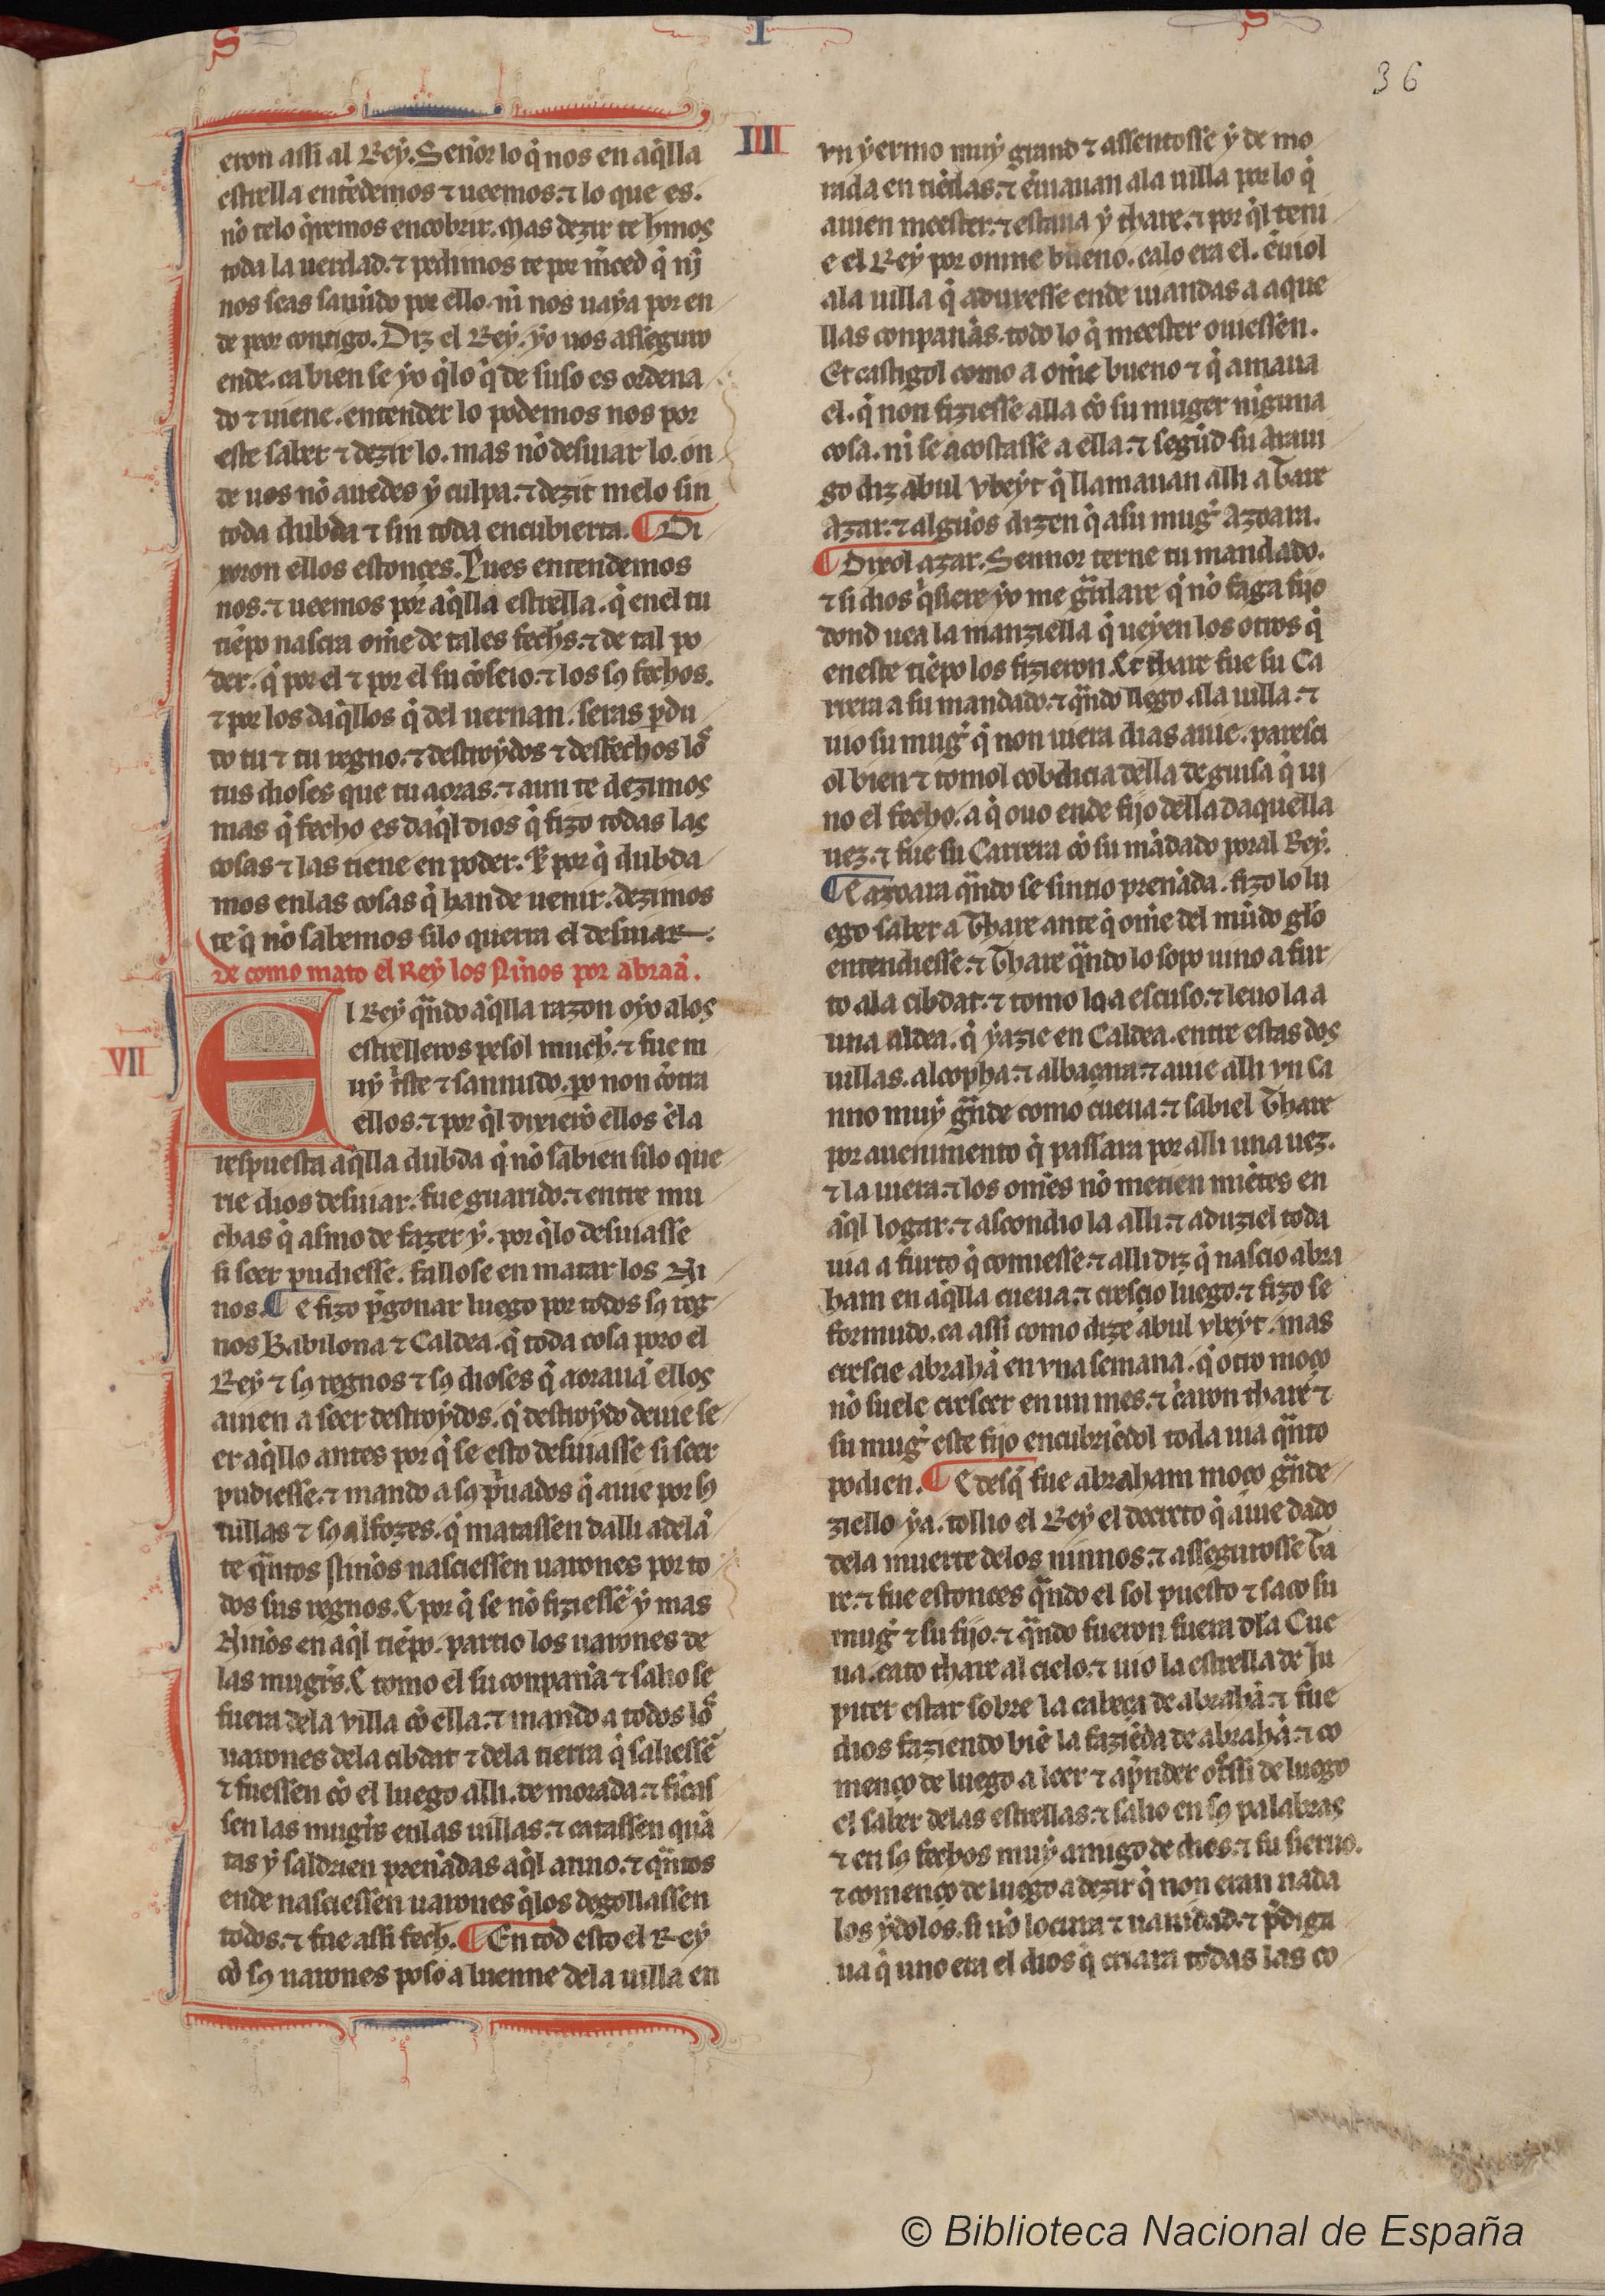 S I S
36
eron assi al Rey. Señor lo q̇ nos en aq̇lla
estrella entẽdemos ⁊ ueemos. ⁊ lo que es.
nõ telo q̇remos encobrir. Mas dezir te hemos
toda la uerdad. ⁊ pedimos te por mẽed q̇ nĩ
nos seas sannudo por ello. nĩ nos uaya por en
de peor contigo. Diz el Rey. yo uos asseguro
ende. ca bien se yo q̇lo q̇ de suso es ordena
do ⁊ uiene. entender lo podemos nos por
este saber ⁊ dezir lo. mas nõ desuiar lo. on
de uos nõ auedes y culpa. ⁊ dezit melo sin
toda dubda ⁊ sin toda encubierta. ¶ Di
xoron ellos estonces. Pues entendemos
nos. ⁊ ueemos por aq̇lla estrella. q̇ enel tu
tiẽpo nascra om̃e de tales fechs. ⁊ de tal po
der. q̇ por el ⁊ por el su cõseio. ⁊ los sꝯ fechos.
⁊ por los daq̇llos q̇ del uernan. seras p̱du
do tu ⁊ tu regno. ⁊ destroydos ⁊ desfechos los
tus dioses que tu aoras. ⁊ aun te dezimos
mas q̇ fecho es daq̇l dios q̇ fizo todas las
cosas ⁊ las tiene en poder. E por q̇ dubda
mos enlas cosas q̇ han de uenir. dezimos
te q̇ nõ sabemos silo querra el desuiar.
De como mato el Rey los Niños por abraã.
VII
El Rey qũdo aq̇lla razon oyo alos
estrelleros pesol much. ⁊ fue m
uy t̓ste ⁊ sannudo. p̱o non cõtra
ellos. ⁊ por q̇l dixierõ ellos ẽla
respuesta aq̇lla dubda q̇ nõ sabien silo que
rie dios desuiar. fue guarido. ⁊ entre mu
chas q̇ asmo de fazer y. por q̇lo desuiasse
si seer pudiesse. fallose en matar los Ni
nos. ¶ E fizo p̓gonar luego por todos sꝯ reg
nos Babilona ⁊ Caldea. q̇ toda cosa poro el
Rey ⁊ sꝯ regnos ⁊ sꝯ dioses q̇ aorauã ellos
auien a seer destroydos. q̇ destroydo deuie se
er aq̇llo antes por q̇ se esto desuiasse si seer
pudiesse. ⁊ mando a sꝯ p̓uados q̇ auie por sꝯ
uillas ⁊ sꝯ alfozes. q̇ matassen dalli adelã
te qũtos niños nasciessen uarones por to
dos sus regnos. E por q̇ se nõ fiziessẽ y mas
Niños en aq̇l tiẽpo. partio los uarones de
las mugr̃s. E tomo el su conpaña ⁊ salio se
fuera dela villa cõ ella. ⁊ mando a todos los
uarones dela cibdat ⁊ dela tierra q̇ saliessẽ
⁊ fuessen cõ el luego alli. de morada. ⁊ ficas
sen las mugr̃s enlas uillas. ⁊ catassen quã
tas y saldrien preñadas aq̇l anno. ⁊ qũtos
ende nasciessen uarones q̇los degollassen
todos. ⁊ fue assi fech. ¶ En tod esto el Rey
cõ sꝯ uarones poso a luenne dela uilla en
III
vn yermo muy grand ⁊ assentosse y de mo
rada en tiẽdas. ⁊ ẽuiauan ala uilla por lo q̇
auien meester. ⁊ estaua y thare. ⁊ por q̇l teni
e el Rey por omne bueno. ca lo era el. ẽuiol
ala uilla q̇ aduxesse ende uiandas a aque
llas conpañas. todo lo q̇ meester ouiessen.
Et castigol como a om̃e bueno ⁊ q̇ amaua
el. q̇ non fiziesse alla cõ su muger niguna
cosa. ni se acostasse a ella. ⁊ segũd su Araui
go diz abul vbeyt q̇ llamauan alli a Thare
Azar. ⁊ alguños dizen q̇ asu mug̓ Azoara.
¶ Dixol azar. Sennor terne tu mandado.
⁊ si dios q̇siere yo me g̃dare q̇ nõ faga fijo
dond uea la manziella q̇ ueyen los otros q̇
eneste tiẽpo los fizieron. Et thare fue su Ca
rrera a su mandado. ⁊ qũdo llego ala uilla. ⁊
uio su mug̓ q̇ non uiera dias auie. paresci
ol bien ⁊ tomol cobdicia della de guisa q̇ ui
no el fecho. a q̇ ouo ende fijo della daquella
uez. ⁊ fue su Carrera cõ su mãdado poral Rey.
¶ E azoara qũdo se sintio preñada. fizo lo lu
ego saber a Thare ante q̇ om̃e del mũdo gelo
entendiesse. ⁊ Thare qũdo lo sopo uino a fur
to ala cibdat. ⁊ tomo la a escuso. ⁊ leuo la a
una aldea. q̇ yazie en Caldea. entre estas dos
uillas. alcopha. ⁊ albaçna. ⁊ auie alli vn Ca
nno muy g̃nde como cueua. ⁊ sabiel Thare
por auenimiento q̇ passara por alli una uez.
⁊ la uiera. ⁊ los om̃es nõ metien miẽtes en
aq̇l logar. ⁊ ascondio la alli. ⁊ aduziel toda
uia a furto q̇ comiesse. ⁊ alli diz q̇ nascio abra
ham en aq̇lla cueua. ⁊ crescio luego. ⁊ fizo se
formudo. ca assi como dize abul vbeyt. mas
crescie abrahã en vna semana. q̇ otro moço
nõ suele crescer en un mes. ⁊ c̓aron thare ⁊
su mug̓ este fijo encubriẽdol toda uia qũto
podien. ¶ E desq̇ fue abraham moço g̃nde
ziello ya. tollio el Rey el decreto q̇ auie dado
dela muerte delos ninnos. ⁊ assegurosse Tha
re. ⁊ fue estonces qũdo el sol puesto ⁊ saco su
mug̓ ⁊ su fijo. ⁊ qũdo fueron fuera dla Cue
ua. cato thare al cielo. ⁊ uio la estrella de Ju
piter estar sobre la cabeça de abrahã. ⁊ fue
dios faziendo biẽ la faziẽda de abrahã. ⁊ co
menço de luego a leer ⁊ ap̓nder ot̓ssi de luego
el saber delas estrellas. ⁊ salio en sꝯ palabras
⁊ en sꝯ fechos muy amigo de dios. ⁊ su sieruo.
⁊ començo de luego a dezir q̇ non eran nada
los ydolos. si nõ locura ⁊ uanidad. ⁊ p̓diga
ua q̇ uno era el dios q̇ criara todas las co
© Biblioteca Nacional de España